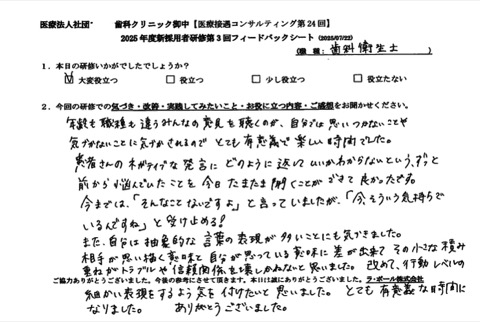 医療法人社団 歯科クリニック御中【医療接遇コンサルティング第24回】
2025年度新採用者研修第3回フィードバックシート(2025/07/23)
(職種:歯科衛生士
1.本日の研修いかがでしたでしょうか?
☑大変役立つ □役立つ □少し役立つ □役立たない
2.今回の研修での気づき・改善・実践してみたいこと・お役に立つ内容・ご感想をお聞かせください。
年齢も職種も違うみんなの意見を聴くのが、自分では思いつかないことや
気づかないことに気づかされるので とても有意義で楽しい時間でした。
患者さんのネガティブな発言に どのように返していいかわからないという、ずっと
前から悩んでいたことを今日たまたま聞くことができて良かったです。
今までは、「そんなことないですよ」と言っていましたが、「今そういう気持ちで
いるんですね」と受け止める!
また、自分は抽象的な言葉の表現が多いことにも気づきました。
相手が思い描く意味と自分が思っている意味に差が出来て その小さな積み
重ねがトラブルや信頼関係を壊しかねないと思いました。改めて、行動レベルの
ご協力ありがとうございました。今後の参考にさせて頂きます。本日は誠にありがとうございました。ラ・ポール株式会社
細かい表現をするよう気を付けたいと思いました。とても有意義な時間に
なりました。 ありがとうございました。